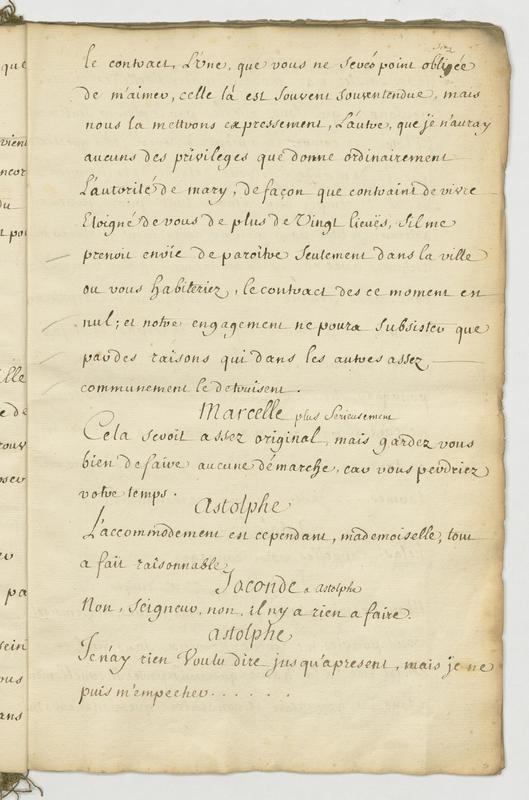 le contract, L'une, que vous ne serés point obligée
de m'aimer, celle là est souvent sousentendue, mais
nous la mettrons expressement, L'autre, que je n'auray
aucuns des privileges que donne ordinairement
L'autorité de mary, de façon que contraint de vivre
Eloigné de vous de plus de Vingt lieuës, s'il me
prenoit envïe de paroître seulement dans la ville
ou vous habiteriez, le contract des ce moment en
nul; et notre engagement ne poura subsister que
par des raisons qui dans les autres assez
communement le detruisent.
Marcelle plus serieusement
Cela seroit assez original, mais gardez vous
bien de faire aucune démarche, car vous perdriez
votre temps.
Astolphe
L'accommodement est cependant, mademoiselle, tout
a fait raisonnable
Joconde a Astolphe
Non, Seigneur, non, il n'y a rien a faire.
astolphe
Je n'ay rien Voulu dire jusqu'apresent, mais je ne
puis m'empecher . . . . . .
que
vient
encor
du
t poi
ille
e de
rouv
oser
pa
sein
ous
ans